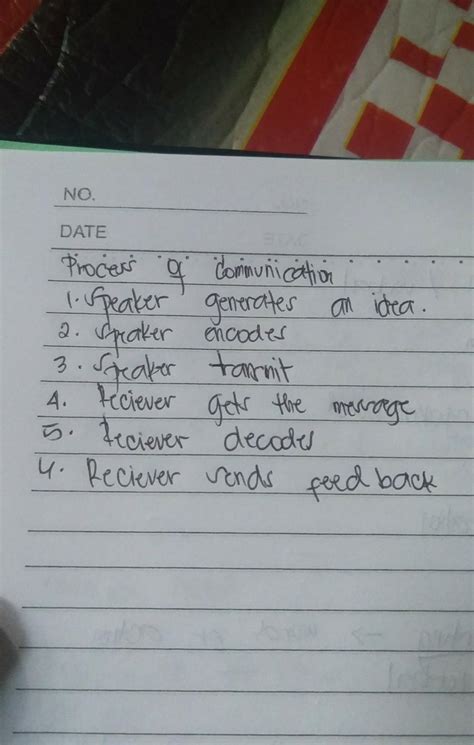 NO.
DATE
Process of communication
1. Speaker generates an idea.
2. Speaker encodes
3. Speaker tranmit
4. Reciever gets the message
5. Reciever decodes
4. Reciever sends feedback